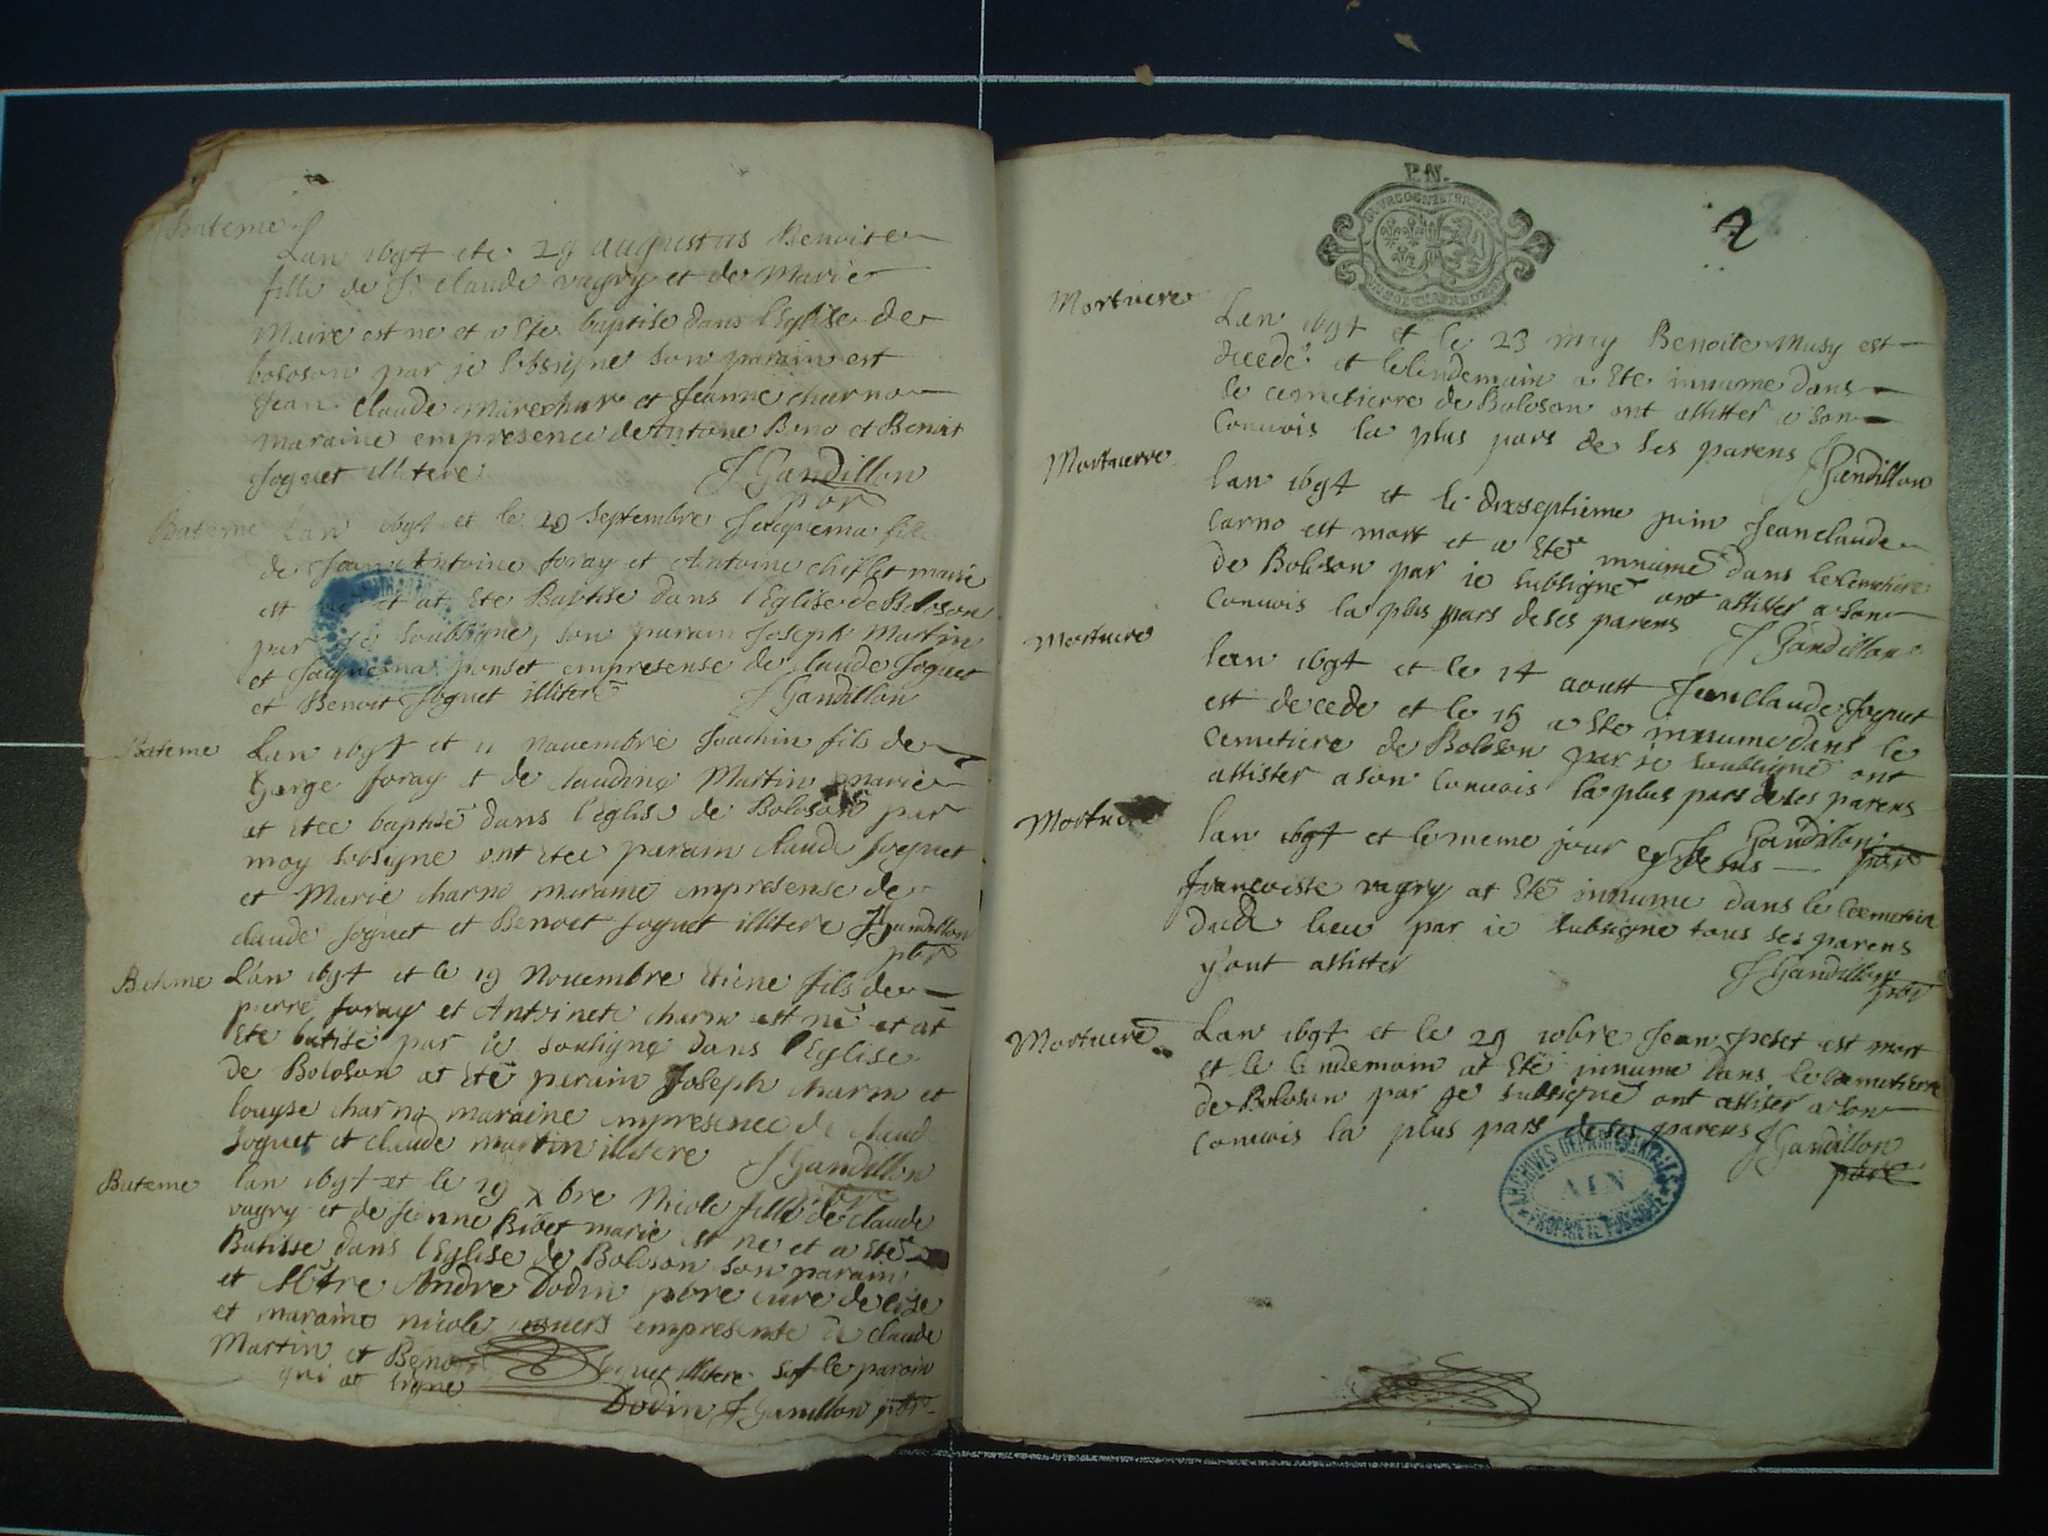 Bateme
Lan 1694 et le 29 augustus Benoite
fille de Sr claude vagry et de Marie
Maire est ne et a ete baptise dans l'Eglise de
boloson par je sobsigne son parain est
Jean claude Marechar et Jeanne charno
maraine empresence de Antone Beno et Benoit
Joguet illitere J Gandillon
pbr
Bateme Lan 1694 et le 29 septembre Jacquema fil
de Jean Antoine foray et Antoine chiflet marie
est et at ete Baptise dans l'Eglise de Boloson
par je soubsigne, son parain Joseph Martin
et Jaquema ponset empresense de claude Joguet
et Benoit Joguet illitere J Gandillon
Bateme Lan 1694 et 11 novembre Joachin fils de
George foray et de claudine Martin marie
et etee baptise dans l'eglise de Boloson par
moy sobsigne ont etee parain claude Joguet
et Marie charno maraine empresense de
claude Joguet et Benoit Joguet illitere J Gandillon
pbr
Bateme L'an 1694 et le 19 Novembre Etiene fils de
pierre foray et Antoinete charno est né et at
ete batisé par ie souligne dans l'Eglise
de Boloson at eté parain Joseph charno et
louyse charno maraine empresence de claud
Joguet et claude martin illitere J Gandillon
pbr
Bateme lan 1694 et le 19 xbre Nicole fille de claude
vagry et de Jeanne Bivet marie est ne et a ete
Batisse dans l'Eglise de Boloson son parain
et Mttre Andre Dodin pbre cure de
et maraine nicole empresense de claude
Martin et Benoit Joguet illitere sof le parain
qui at signe
Dodin J Gandillon pbr
P.N.
2
Mortuere
Lan 1694 et le 23 may Benoite Musy est
decedé et le lendemain a ete innume dans
le cemetierre de Boloson ont assister a son
convois la plus pars de ses parens J Gandillon
Mortuerre
lan 1694 et le dixseptieme juin Jean claude
Carno est mort et a eté innumé dans le cemetiere
de Boloson par ie subsigné ont assister a son
convois la plus pars de ses parens
J Gandillon
Mortuere
lan 1694 et le 14 aoust Jean Claude Joguet
est decede et le 15 a ete innume dans le
cemetiere de Boloson par ie soubsigné ont
assister a son convois la plus pars de ses parens
J Gandillon
pbr
Mortuere
lan 1694 et le meme jour cy desus
francoise vagry at eté innume dans le cemetier
dudi lieu par ie subsigne tous ses parens
y ont assister J Gandillon
pbr
Mortuere
Lan 1694 et le 29 10bre Jean peset est mort
et le lendemain at eté innume dans le cemetierre
de Boloson par je subsigné ont assiser a son
convois la plus pars de ses parens J Gandillon
pbre
ARCHIVES DÉPARTEMENTALES
AIN
PROPRIÉTÉ PUBLIQUE